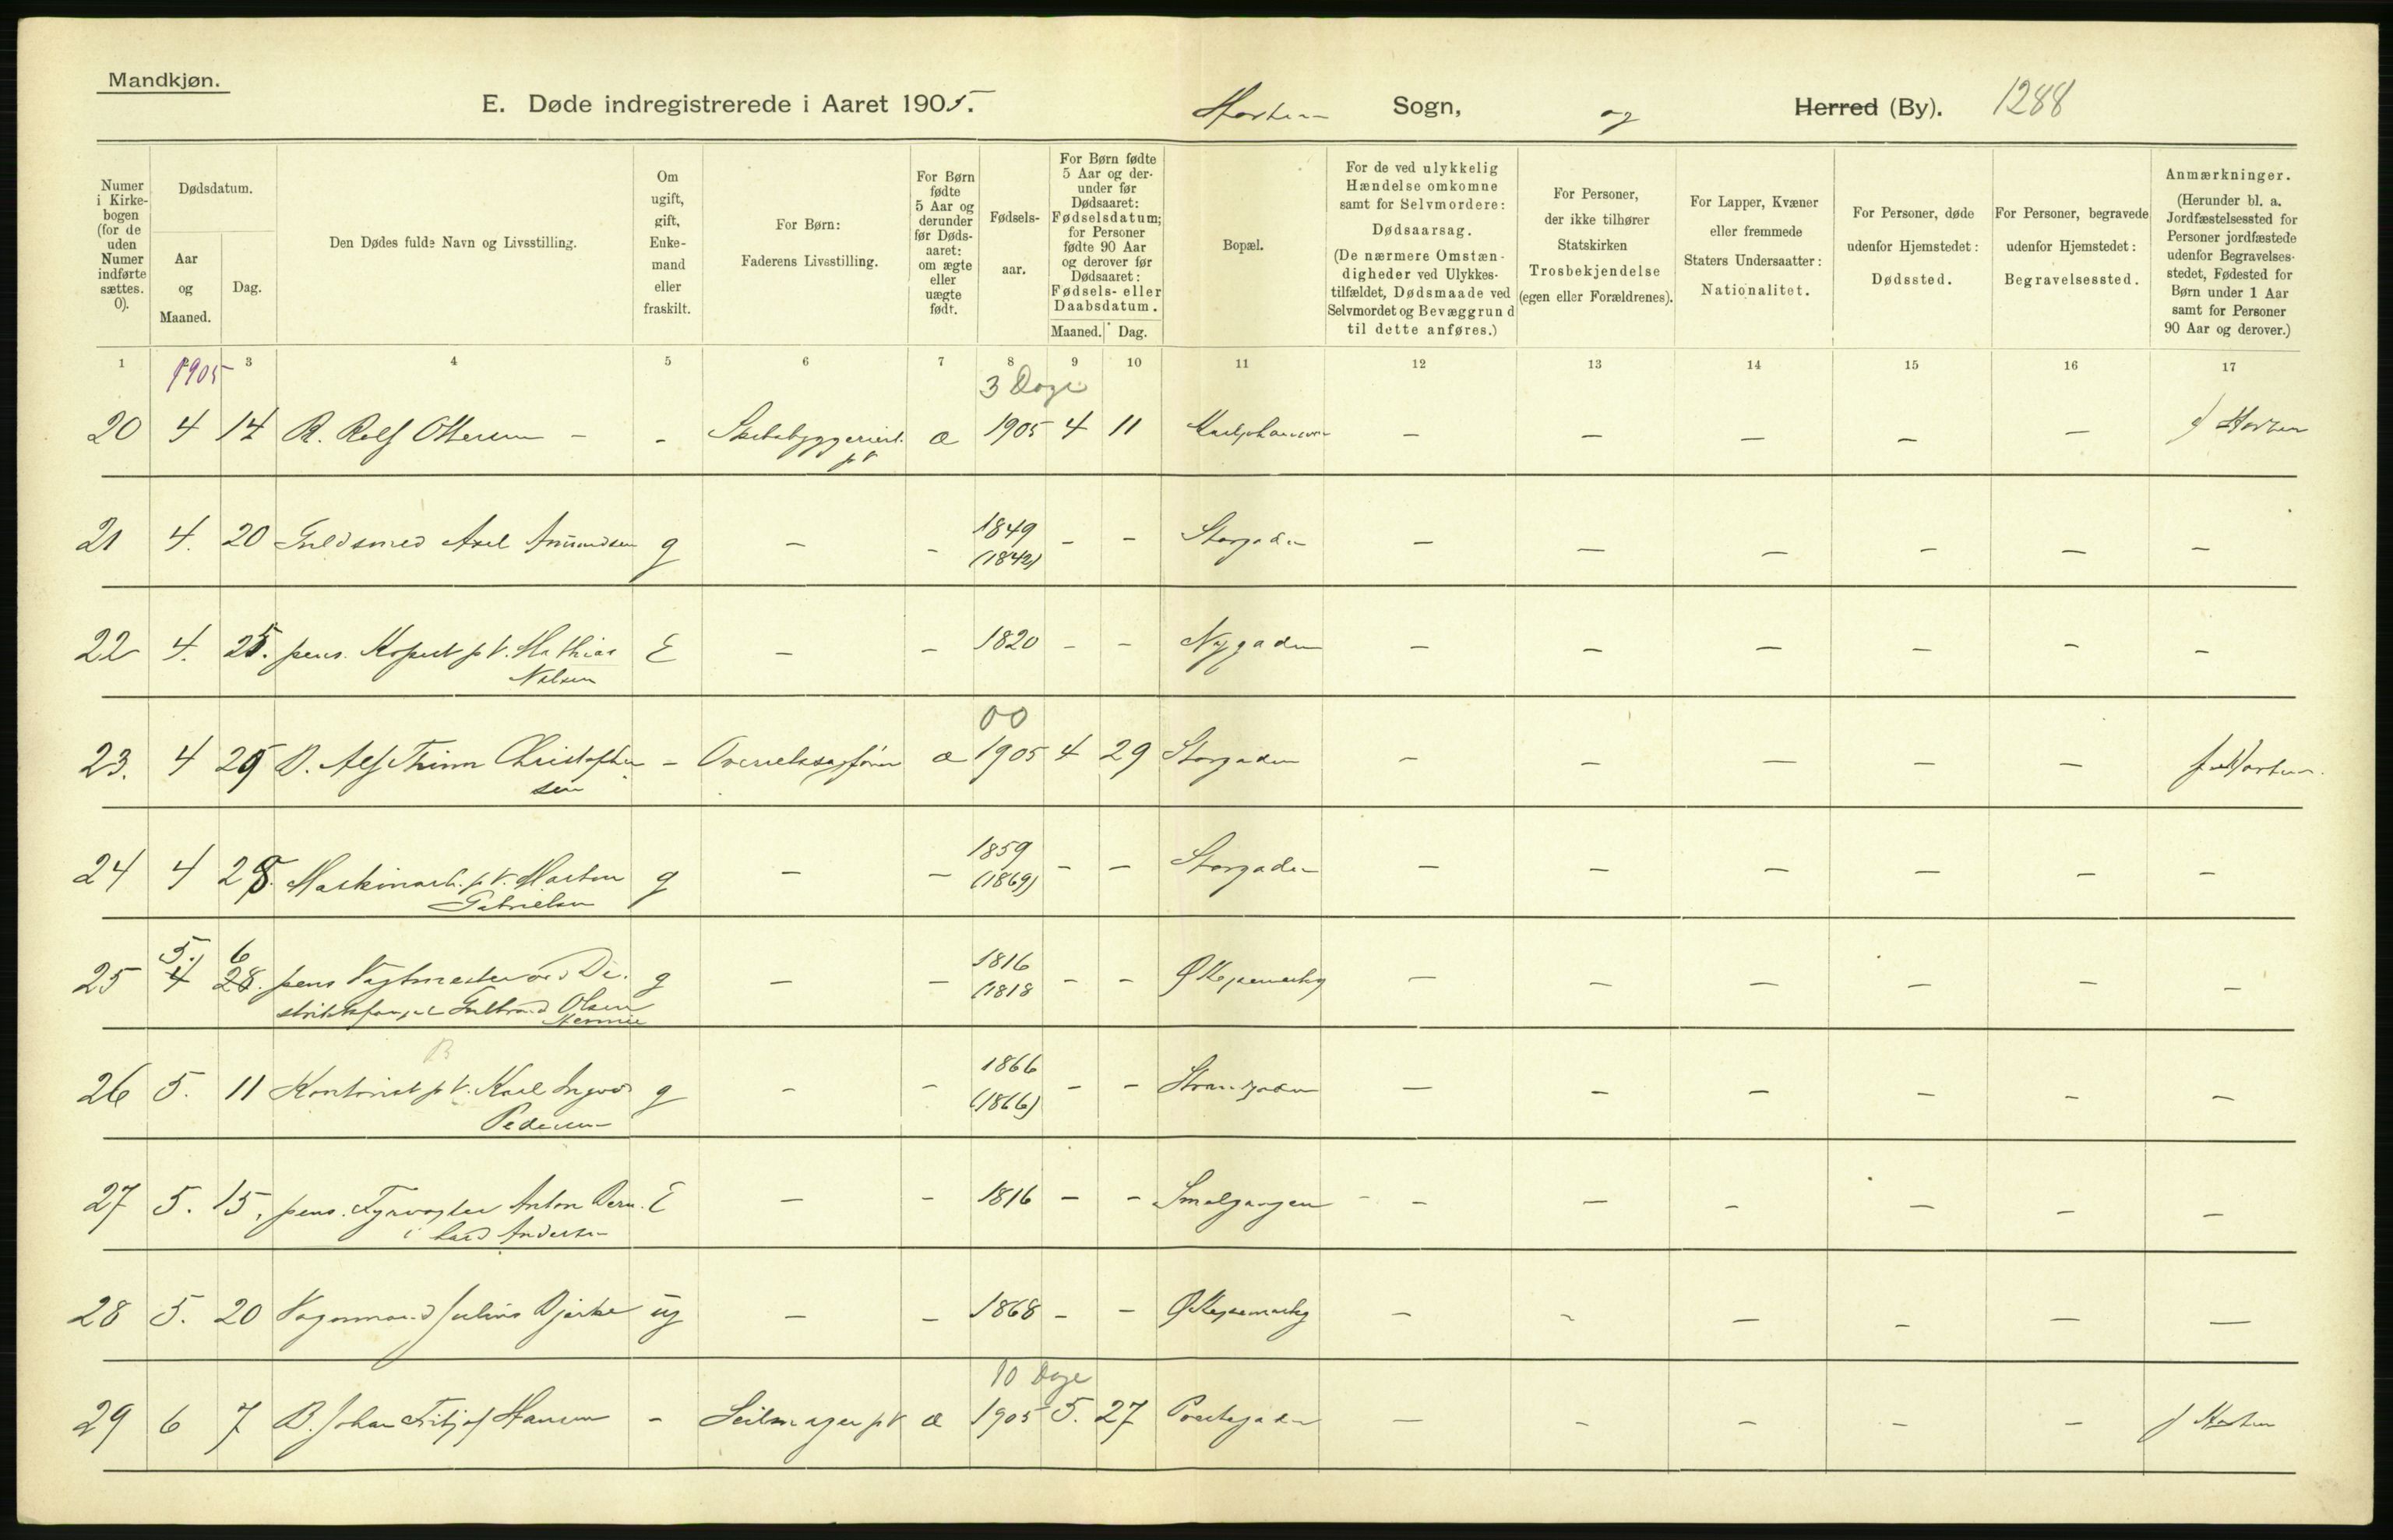 Mandkjøn.
E. Døde indregistrerede i Aaret 1905. Horten Sogn, og Herred (By). 1288
Numer i Kirkebogen (for de uden Numer indførte sættes. 0).
Dødsdatum.
Aar og Maaned.
Dag.
Den Dødes fulde Navn og Livsstilling.
Om ugift, gift, Enkemand eller fraskilt.
For Børn: Faderens Livsstilling.
For Børn fødte 5 Aar og derunder før Dødsaaret: om ægte eller uægte født.
Fødselsaar.
For Børn fødte 5 Aar og derunder før Dødsaaret: Fødselsdatum; for Personer fødte 90 Aar og derover før Dødsaaret: Fødsels- eller Daabsdatum.
Maaned. Dag.
Bopæl.
For de ved ulykkelig Hændelse omkomne samt for Selvmordere: Dødsaarsag. (De nærmere Omstændigheder ved Ulykkestilfældet, Dødsmaade ved Selvmordet og Bevæggrund til dette anføres.)
For Personer, der ikke tilhører Statskirken Trosbekjendelse (egen eller Forældrenes).
For Lapper, Kvæner eller fremmede Staters Undersaatter: Nationalitet.
For Personer, døde udenfor Hjemstedet: Dødssted.
For Personer, begravede udenfor Hjemstedet: Begravelsessted.
Anmærkninger. (Herunder bl. a. Jordfæstelsessted for Personer jordfæstede udenfor Begravelsesstedet, Fødested for Børn under 1 Aar samt for Personer 90 Aar og derover.)
1 3 4 5 6 7 8 9 10 11 12 13 14 15 16 17
1905 3 Dage
20 4 14 B. Rolf Ottersen - - Skibsbyggeriarb. p V æ 1905 4 11 — — — — — f Horten
21 4. 20 Guldsmed Axel Amundsen g — - 1849 (1842) - - Storgaden — — — — — —
22 4. 25. pens. Kopist p V. Mathias Nilsen E — - 1820 - - Nygaden — — — — — —
00
23. 4 29 B. Alf Thinn Christophersen - Overretssagfører æ 1905 4 29 Storgaden — — — — — f Horten.
24 4 28. Maskinarb. p V. Morten Gabrielsen g — - 1859 (1869) - - Storgaden — — — — — —
5. 6
25 4 28. pens Vagtmester ved Distriktsfængsel Gulbrand Olsen g — - 1816 (1818 - - — — — — — —
26 5. 11 Kontorist p V. Karl Ingvald Pedersen g - - 1866 (1866) - - Strandgaden — — — — — —
27 5. 15. pens. Fyrvogter Anton Bernhard Andersen E — - 1816 - - Smalgangen — — — — — —
28 5. 20 Vognmand Julius Bjerke ug — - 1868 - - — - — - — —
10 Dage
29 6 7 B. Johan Fritjof Hansen - Seilmager p V æ 1905 5. 27 — - - - - f Horten